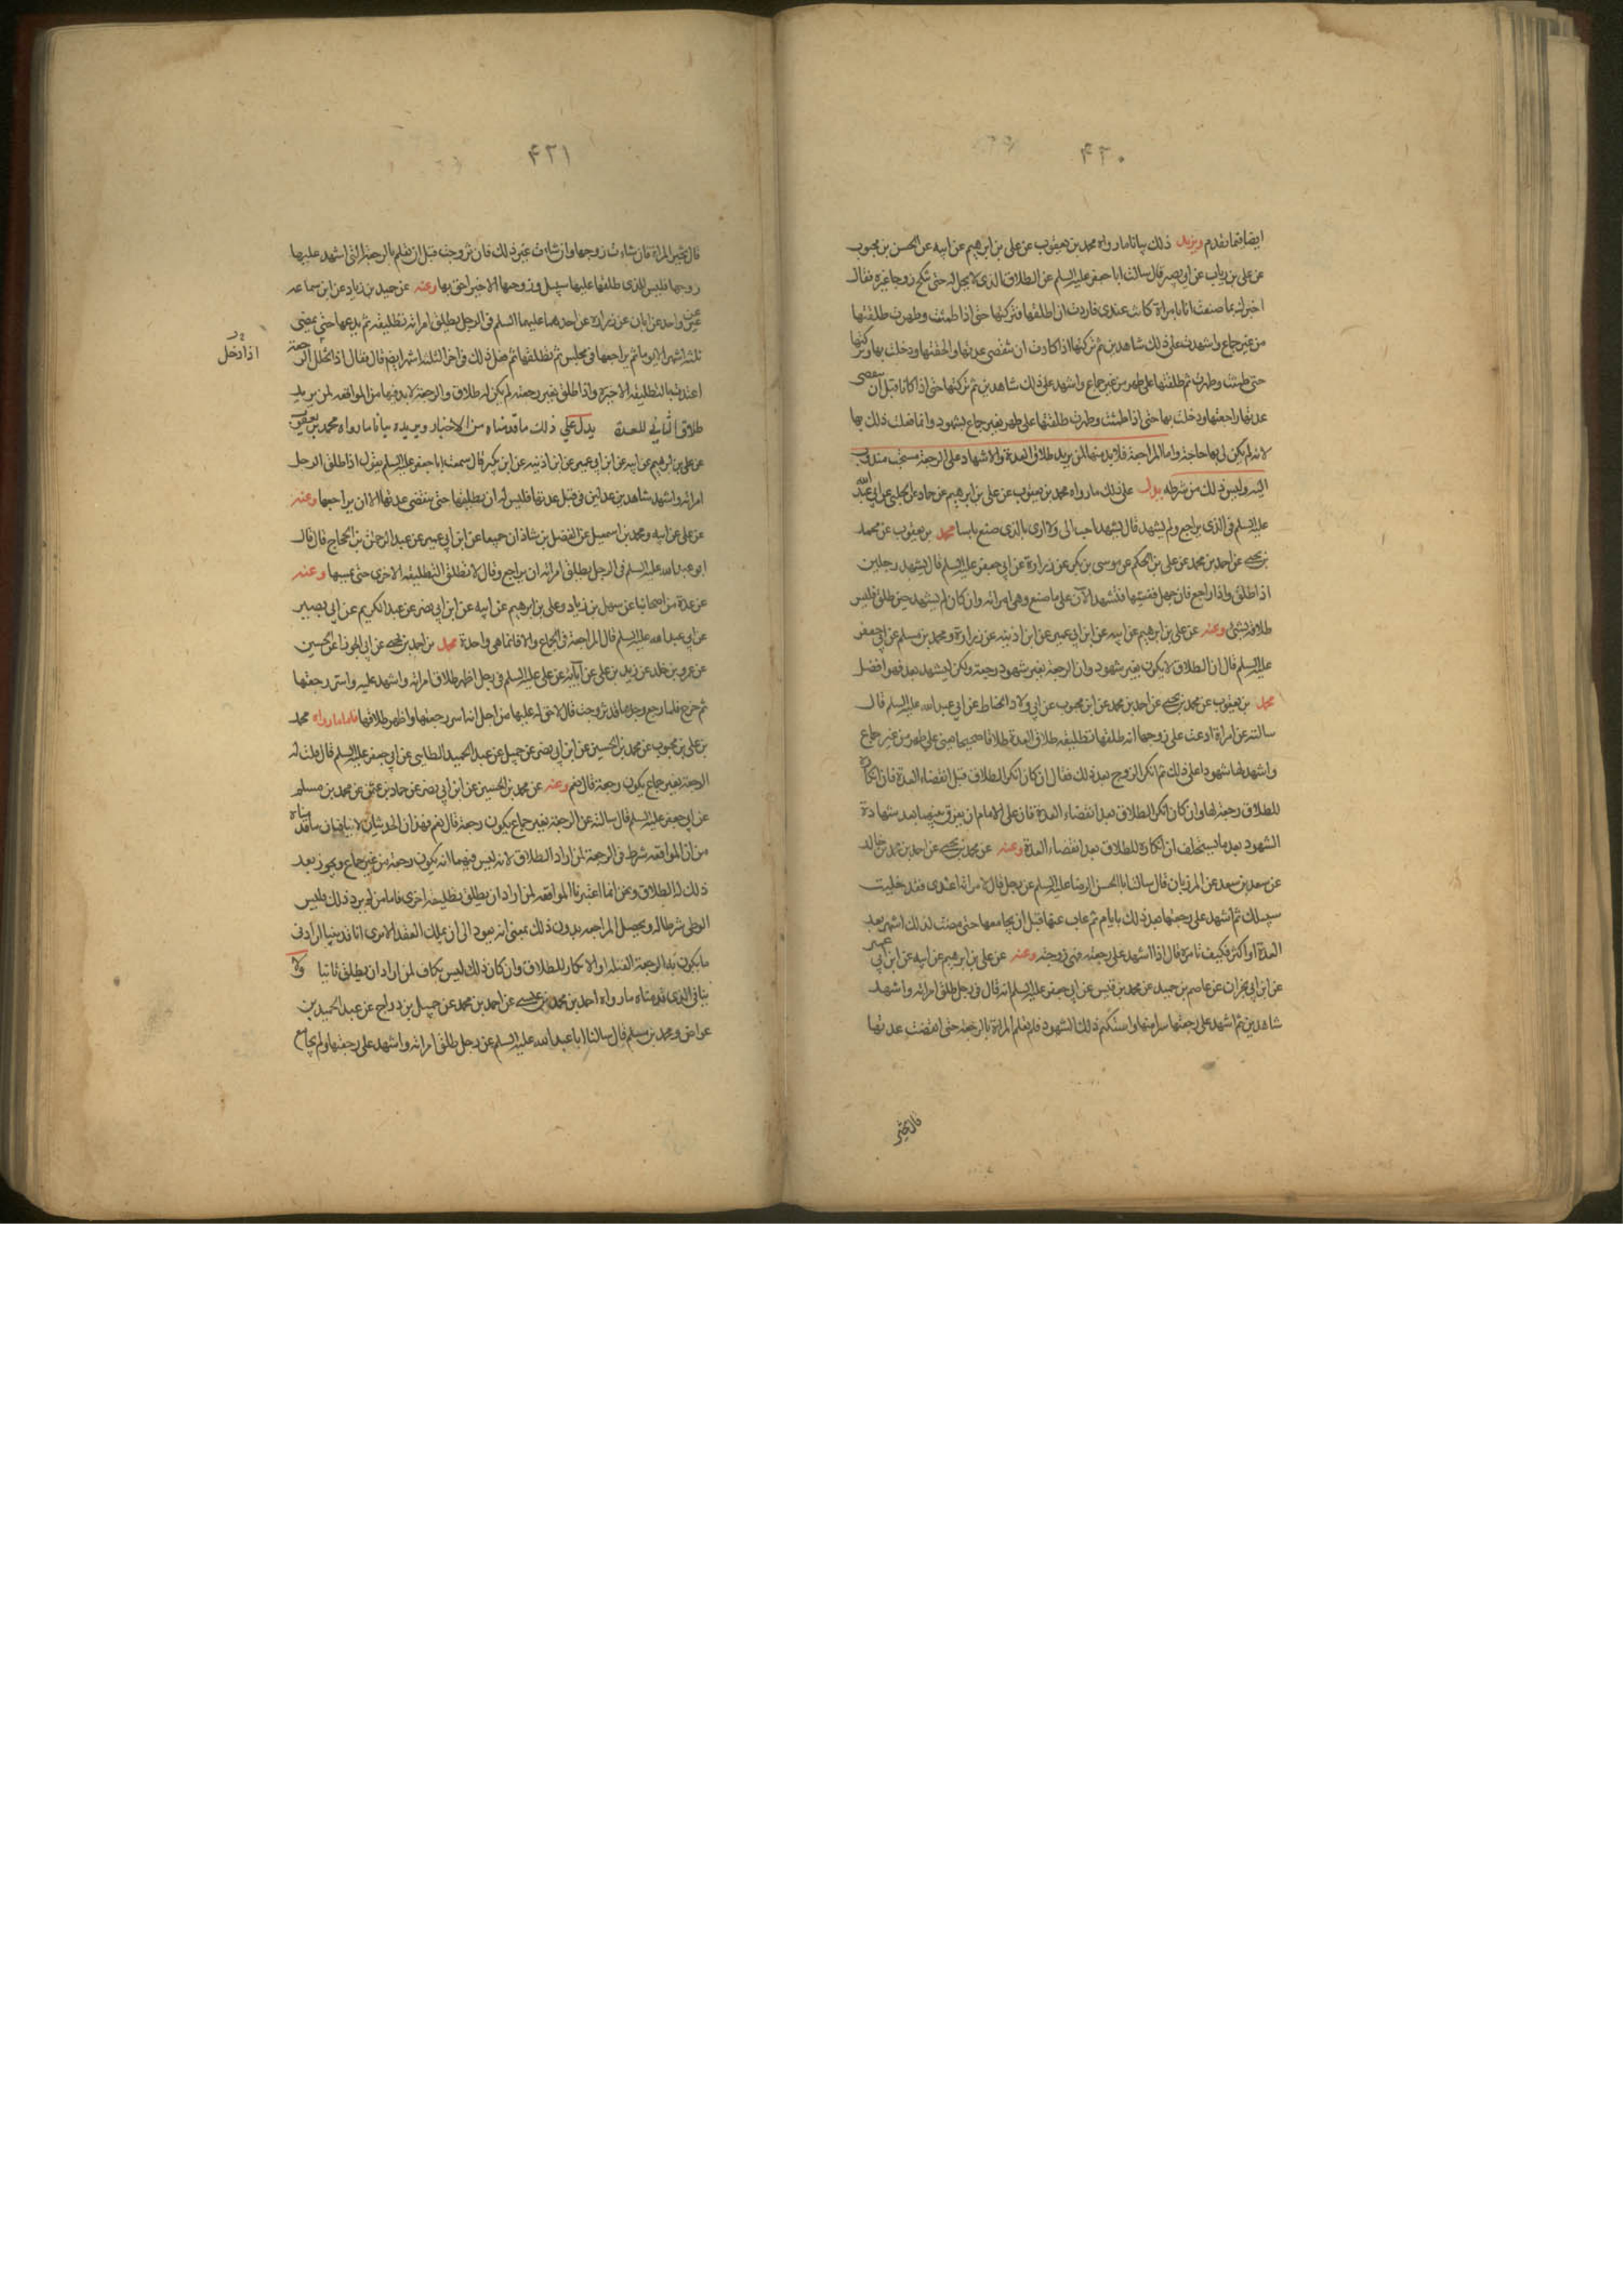 ٤٢٠
ايضا فيما تقدم ويزيد ذلك بيانا ما رواه محمد بن يعقوب عن علي بن ابرهيم عن ابيه عن الحسن بن محبوب
عن علي بن رياب عن ابي بصير قال سالت ابا جعفر عليه السلم عن الطلاق الذي لا يحل له حتى تنكح زوجا غيره فقال
اخبرك بما صنعت انا بامراة كانت عندي فاردت ان اطلقها فتركتها حتى اذا طمثت وطهرت طلقتها
من غير جماع واشهدت على ذلك شاهدين ثم تركتها اذا كادت ان تنقضي عدتها راجعتها ودخلت بها وتركتها
حتى طمثت وطهرت ثم طلقتها على طهر من غير جماع واشهدت على ذلك شاهدين ثم تركتها حتى اذا كانا قبل ان تنقضي
عدتها راجعتها ودخلت بها حتى اذا طمثت وطهرت طلقتها على طهر بغير جماع بشهود وانما فعلت ذلك بها
لانه لم يكن لي بها حاجة واما المراجعة فلا بد منها لمن يريد طلاق العدة والاشهاد على الرجعة مستحب مندوب
اليه وليس ذلك من شرطه يدل على ذلك ما رواه محمد بن يعقوب عن علي بن ابرهيم عن حماد عن الحلبي عن ابي عبد الله
عليه السلم في الذي يراجع ولم يشهد قال يشهد احب الي ولا ارى بالذي صنع باسا محمد بن يعقوب عن محمد
بن يحيى عن احمد بن محمد عن علي بن الحكم عن موسى بن بكر عن زرارة عن ابي جعفر عليه السلم قال يشهد رجلين
اذا طلق واذا راجع فان جهل فغشيها فليشهد الآن على ما صنع وهي امراته وان كان لم يشهد حين طلق فليس
طلاقه بشئ وعنه عن علي بن ابرهيم عن ابيه عن ابن ابي عمير عن ابن اذينه عن زرارة ومحمد بن مسلم عن ابي جعفر
عليه السلم قال ان الطلاق لا يكون بغير شهود وان الرجعة بغير شهود رجعة ولكن ليشهد بعد فهو افضل
محمد بن يعقوب عن محمد بن يحيى عن احمد بن محمد عن ابن محبوب عن ابي ولاد الحناط عن ابي عبد الله عليه السلم قال
سالته عن امراة ادعت على زوجها انه طلقها تطليقه طلاق العدة طلاقا صحيحا يعني على طهر من غير جماع
واشهد لها شهودا على ذلك ثم انكر الزوج بعد ذلك فقال ان كان انكر الطلاق قبل انقضاء العدة فان انكاره
للطلاق رجعة لها وان كان انكر الطلاق بعد انقضاء العدة فان على الامام ان يفرق بينهما بعد شهادة
الشهود بعد ما يستحلف ان انكاره للطلاق بعد انقضاء العدة وعنه عن محمد بن يحيى عن احمد بن محمد بن خالد
عن سعد بن سعد عن المرزبان قال سالت ابا الحسن الرضا عليه السلم عن رجل قال لامراته اعتدي فقد خليت
سبيلك ثم اشهد على رجعتها بعد ذلك بايام ثم غاب عنها قبل ان يجامعها حتى مضت لذلك اشهر بعد
العدة او اكثر فكيف تامره قال اذا اشهد على رجعته فهي زوجته وعنه عن علي بن ابرهيم عن ابيه عن ابن ابي عمير
عن ابن ابي نجران عن عاصم بن حميد عن محمد بن قيس عن ابي جعفر عليه السلم انه قال في رجل طلق امراته واشهد
شاهدين ثم اشهد على رجعتها سرا منها واستكتم ذلك الشهود فلم تعلم المراة بالرجعة حتى انقضت عدتها
قال تخير
٤٢١
قال تخير المراة فان شاءت زوجها وان شاءت غير ذلك فان تزوجت قبل ان تعلم بالرجعة التي اشهد عليها
زوجها فليس للذي طلقها عليها سبيل وزوجها الاخير احق بها وعنه عن حميد بن زياد عن ابن سماعه
عن غير واحد عن ابان عن زرارة عن احدهما عليهما السلم في الرجل يطلق امراته تطليقه ثم يدعها حتى يمضي
ثلثة اشهر الا يوما ثم يراجعها في مجلس ثم تطلقها ثم فعل ذلك في اخر الثلثة اشهر ايضا قال فقال اذا تخلل الرجعة
اذا دخل
اعتدت بالتطليقه الاخيرة واذا طلق بغير رجعة لم يكن له طلاق والرجعة لا بد فيها من المواقعه لمن يريد
طلاق الثاني للعدة يدل على ذلك ما قدمناه من الاخبار ويزيده بيانا ما رواه محمد بن يعقوب
عن علي بن ابرهيم عن ابيه عن ابن ابي عمير عن ابن اذينه عن ابن بكير قال سمعت ابا جعفر عليه السلم يقول اذا طلق الرجل
امراته واشهد شاهدين عدلين في قبل عدتها فليس له ان يطلقها حتى ينقضي عدتها الا ان يراجعها وعنه
عن علي عن ابيه ومحمد بن اسمعيل عن الفضل بن شاذان جميعا عن ابن ابي عمير عن عبد الرحمن بن الحجاج قال قال
ابو عبد الله عليه السلم في الرجل يطلق امراته ان يراجع وقال لا تطلق التطليقه الاخرى حتى يمسها وعنه
عن عدة من اصحابنا عن سهل بن زياد وعلي بن ابرهيم عن ابيه عن ابن ابي نصر عن عبد الكريم عن ابي بصير
عن ابي عبد الله عليه السلم قال المراجعة في الجماع والا فانما هي واحدة محمد بن احمد بن يحيى عن ابي الجوزا عن الحسين
عن عمرو بن خلد عن زيد بن علي عن آبائه عن علي عليه السلم في رجل اظهر طلاق امراته واشهد عليه واسر رجعتها
ثم خرج فلما رجع وجدها قد تزوجت قال لا حق له عليها من اجل انه اسر رجعتها واظهر طلاقها فاما ما رواه محمد
بن علي بن محبوب عن محمد بن الحسين عن ابن ابي نصر عن جميل عن عبد الحميد الطائي عن ابي جعفر عليه السلم قال قلت له
الرجعة بغير جماع يكون رجعة قال نعم وعنه عن محمد بن الحسين عن ابن ابي نصر عن حماد بن عثمن عن محمد بن مسلم
عن ابي جعفر عليه السلم قال سالته عن الرجعة بغير جماع يكون رجعة قال نعم فهذان الحديثان لا ينافيان ما قدمناه
من ان المواقعه شرط في الرجعة لمن اراد الطلاق لانه ليس فيهما انه يكون رجعة من غير جماع ويجوز بعد
ذلك له الطلاق ونحن انما اعتبرنا المواقعه لمن اراد ان يطلق تطليقه اخرى فاما من لم يرد ذلك فليس
الوطي شرطا له ويحصل المراجعه بدون ذلك بمعنى انه يعود الى ان يملك العقد الا ترى انا قد بينا ان ادنى
ما يكون به الرجعة القبله او الانكار للطلاق وان كان ذلك ليس بكاف لمن اراد ان يطلق ثانيا ولا
ينافي الذي قدمناه ما رواه احمد بن محمد بن عيسى عن احمد بن محمد عن جميل بن دراج عن عبد الحميد بن
عواض ومحمد بن مسلم قال سالنا ابا عبد الله عليه السلم عن رجل طلق امراته واشهد على رجعتها ولم يجامع